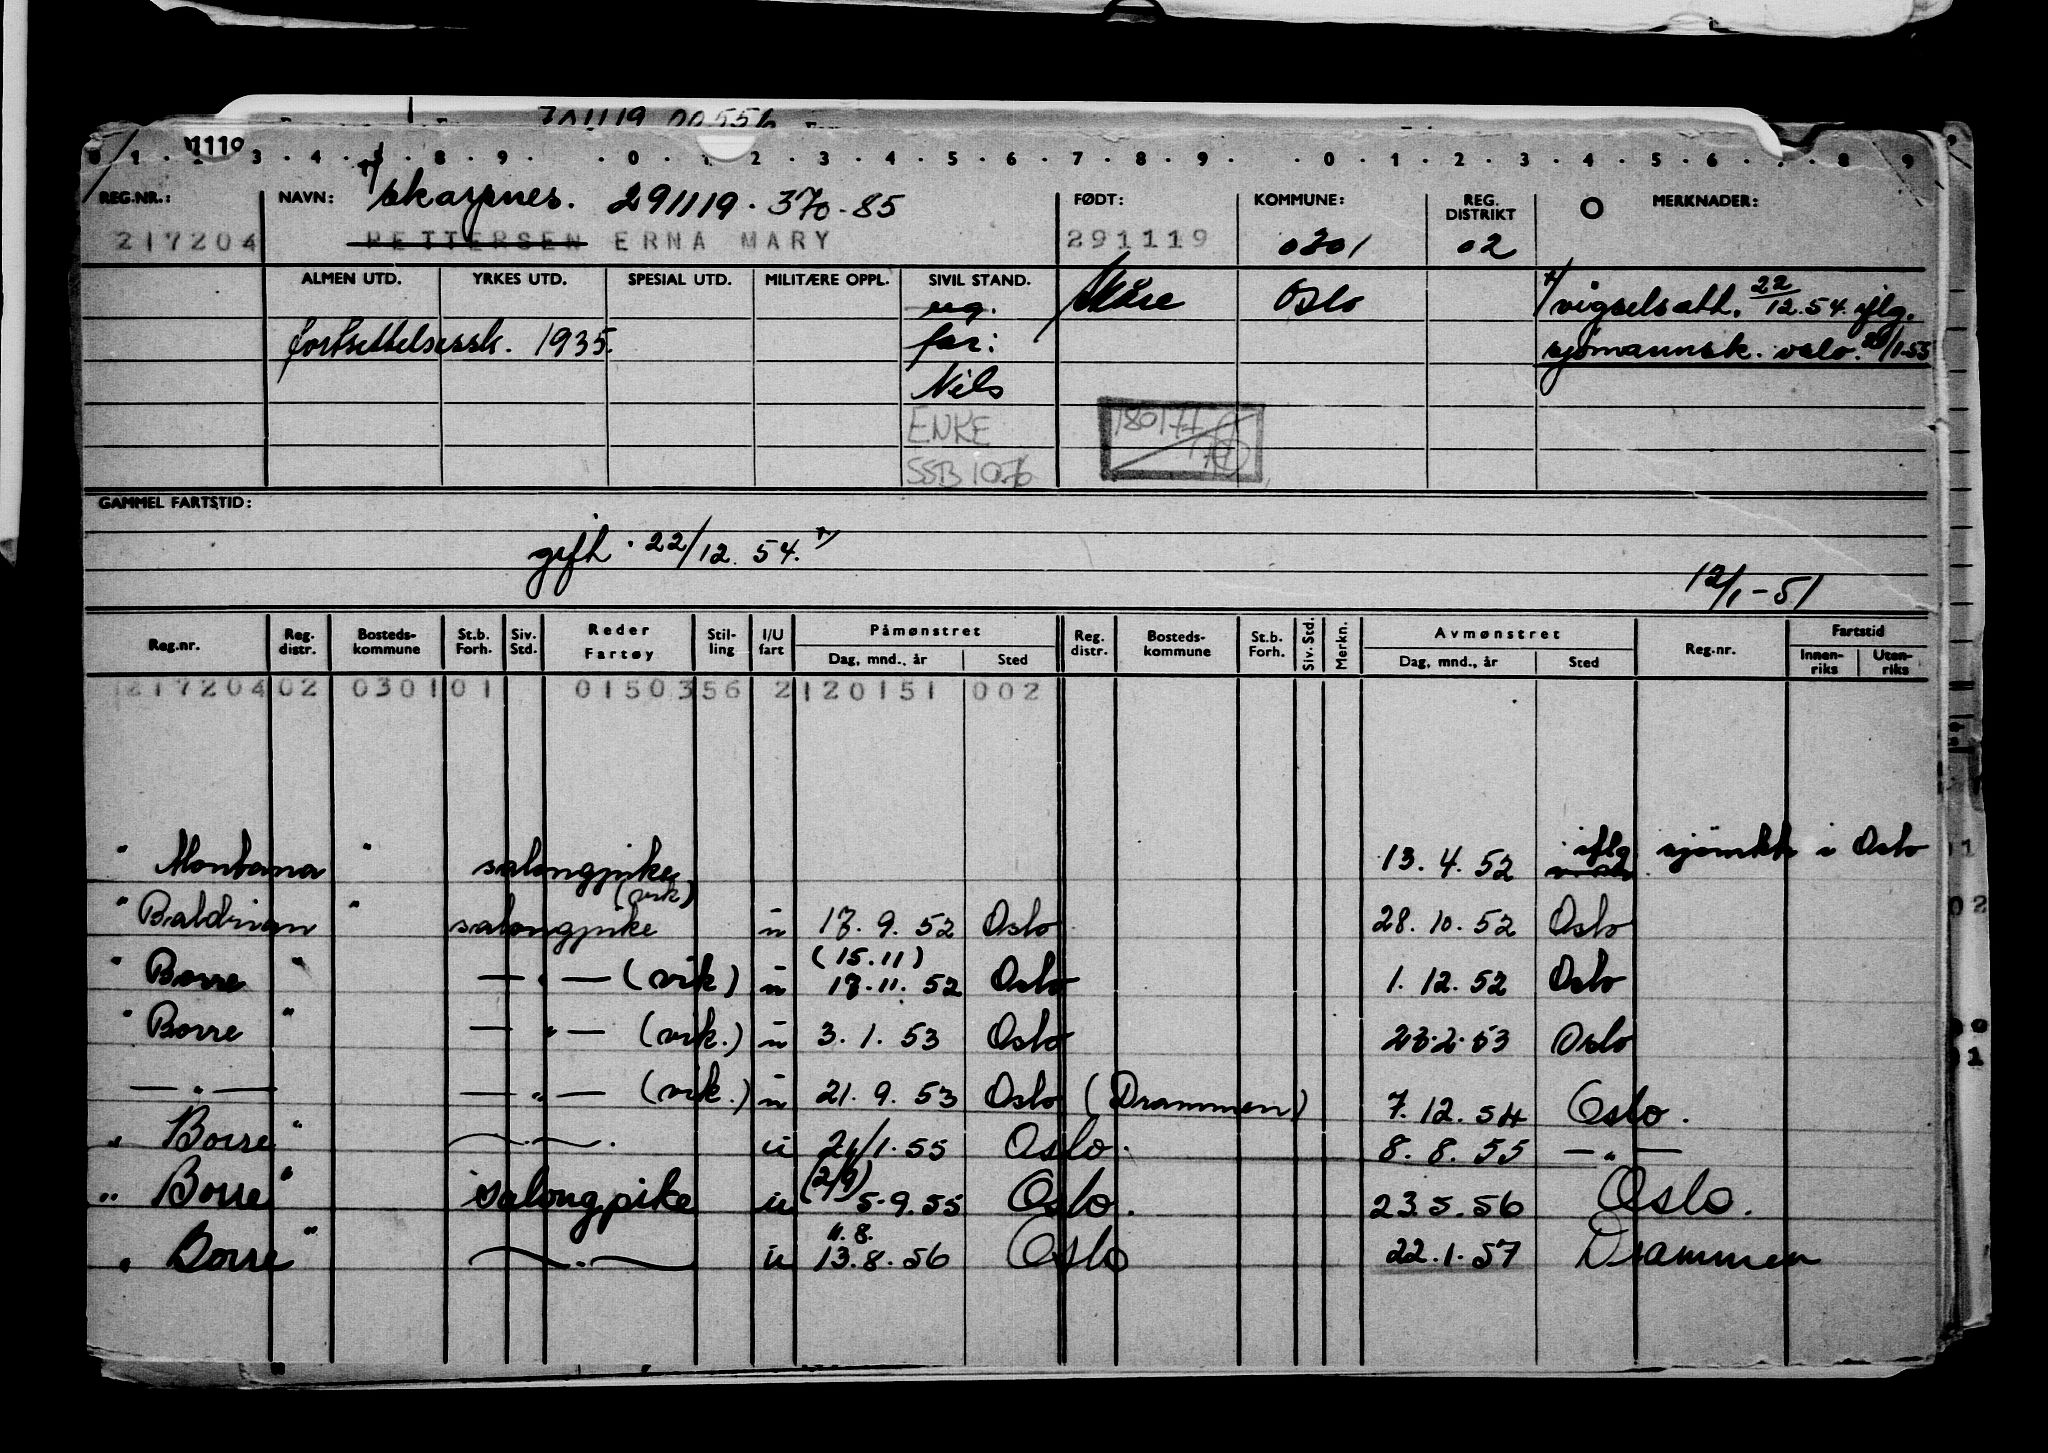 1119
0 1 2 3 4 8 9 0 1 2 3 4 5 6 7 8 9 0 1 2 3 4 5 6 8 9
REG.NR.: NAVN: Skarpnes. 291119. 370-85 FØDT: KOMMUNE: REG. DISTRIKT MERKNADER:
217204 PETTERSEN ERNA MARY 291119 0301 02
ALMEN UTD. YRKES UTD. SPESIAL UTD. MILITÆRE OPPL. SIVIL STAND.
ug. Oslo vigselsatt. 22/12.54. iflg.
fortsettelsessk. 1935. far: sjømannsk. Oslo.
Nils
ENKE 180177
SSB 1076
GAMMEL FARTSTID:
gift. 22/12. 54. x)
12/1-51
Reg.nr. Reg. distr. Bosteds-kommune St.b. Forh. Siv. Std. Reder Fartøy Stil-ling I/U fart Påmønstret Dag, mnd., år Sted Reg. distr. Bosteds-kommune St.b. Forh. Siv. Std. Merkn. Avmønstret Dag, mnd., år Sted Reg.nr. Fartstid Innen-riks Uten-riks
217204 02 0301 01 01503 56 2 120151 002
" Montana " salongpike 13. 4. 52 iflg sjømkk i Oslo
(vik)
" Baldrian " salongpike u 17. 9. 52 Oslo 28. 10. 52 Oslo
(15.11)
" Borre " — " — (vik) u 17. 11. 52 Oslo 1. 12. 52 Oslo
" Borre " — " — (vik.) u 3. 1. 53 Oslo 23.2.53 Oslo
— " — — " — (vik.) u 21. 9. 53 Oslo (Drammen) 7. 12. 54 Oslo.
" Borre " — " — u 21/1. 55 Oslo. 8. 8. 55 — " —
(2/9)
" Borre " salongpike u 5.9.55 Oslo. 23.5.56 Oslo.
11.8.
" Borre " — " — u 13.8.56 Oslo 22.1.57 Drammen